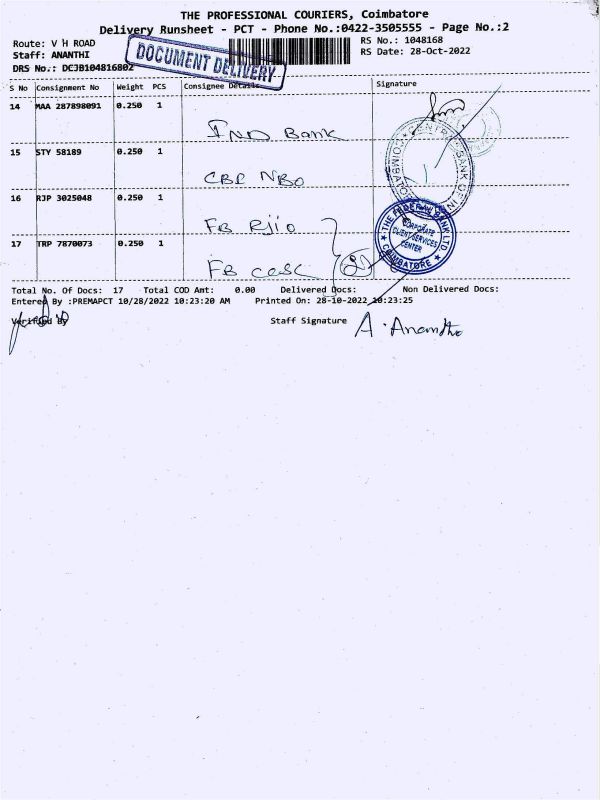 THE PROFESSIONAL COURIERS, Coimbatore
Delivery Runsheet - PCT - Phone No.:0422-3505555 - Page No.:2
Route: V H ROAD
RS No.: 1048168
Staff: ANANTHI
RS Date: 28-Oct-2022
DRS No.: DCJB104816802
DOCUMENT DELIVERY
S No Consignment No Weight PCS Consignee Details Signature
14 MAA 287898091 0.250 1
IND Bank
15 STY 58189 0.250 1
CBE NBO
16 RJP 3025048 0.250 1
FB Rjio
17 TRP 7870073 0.250 1
FB
CENTRAL BANK OF IN
COIMBATO
THE FEDERAL BANK LTD
CORPORATE
CLIENT SERVICES
CENTER
COIMBATORE
Total No. Of Docs: 17 Total COD Amt: 0.00 Delivered Docs: Non Delivered Docs:
Entered By :PREMAPCT 10/28/2022 10:23:20 AM Printed On: 28-10-2022 10:23:25
Verified By
Staff Signature A. Ananthi